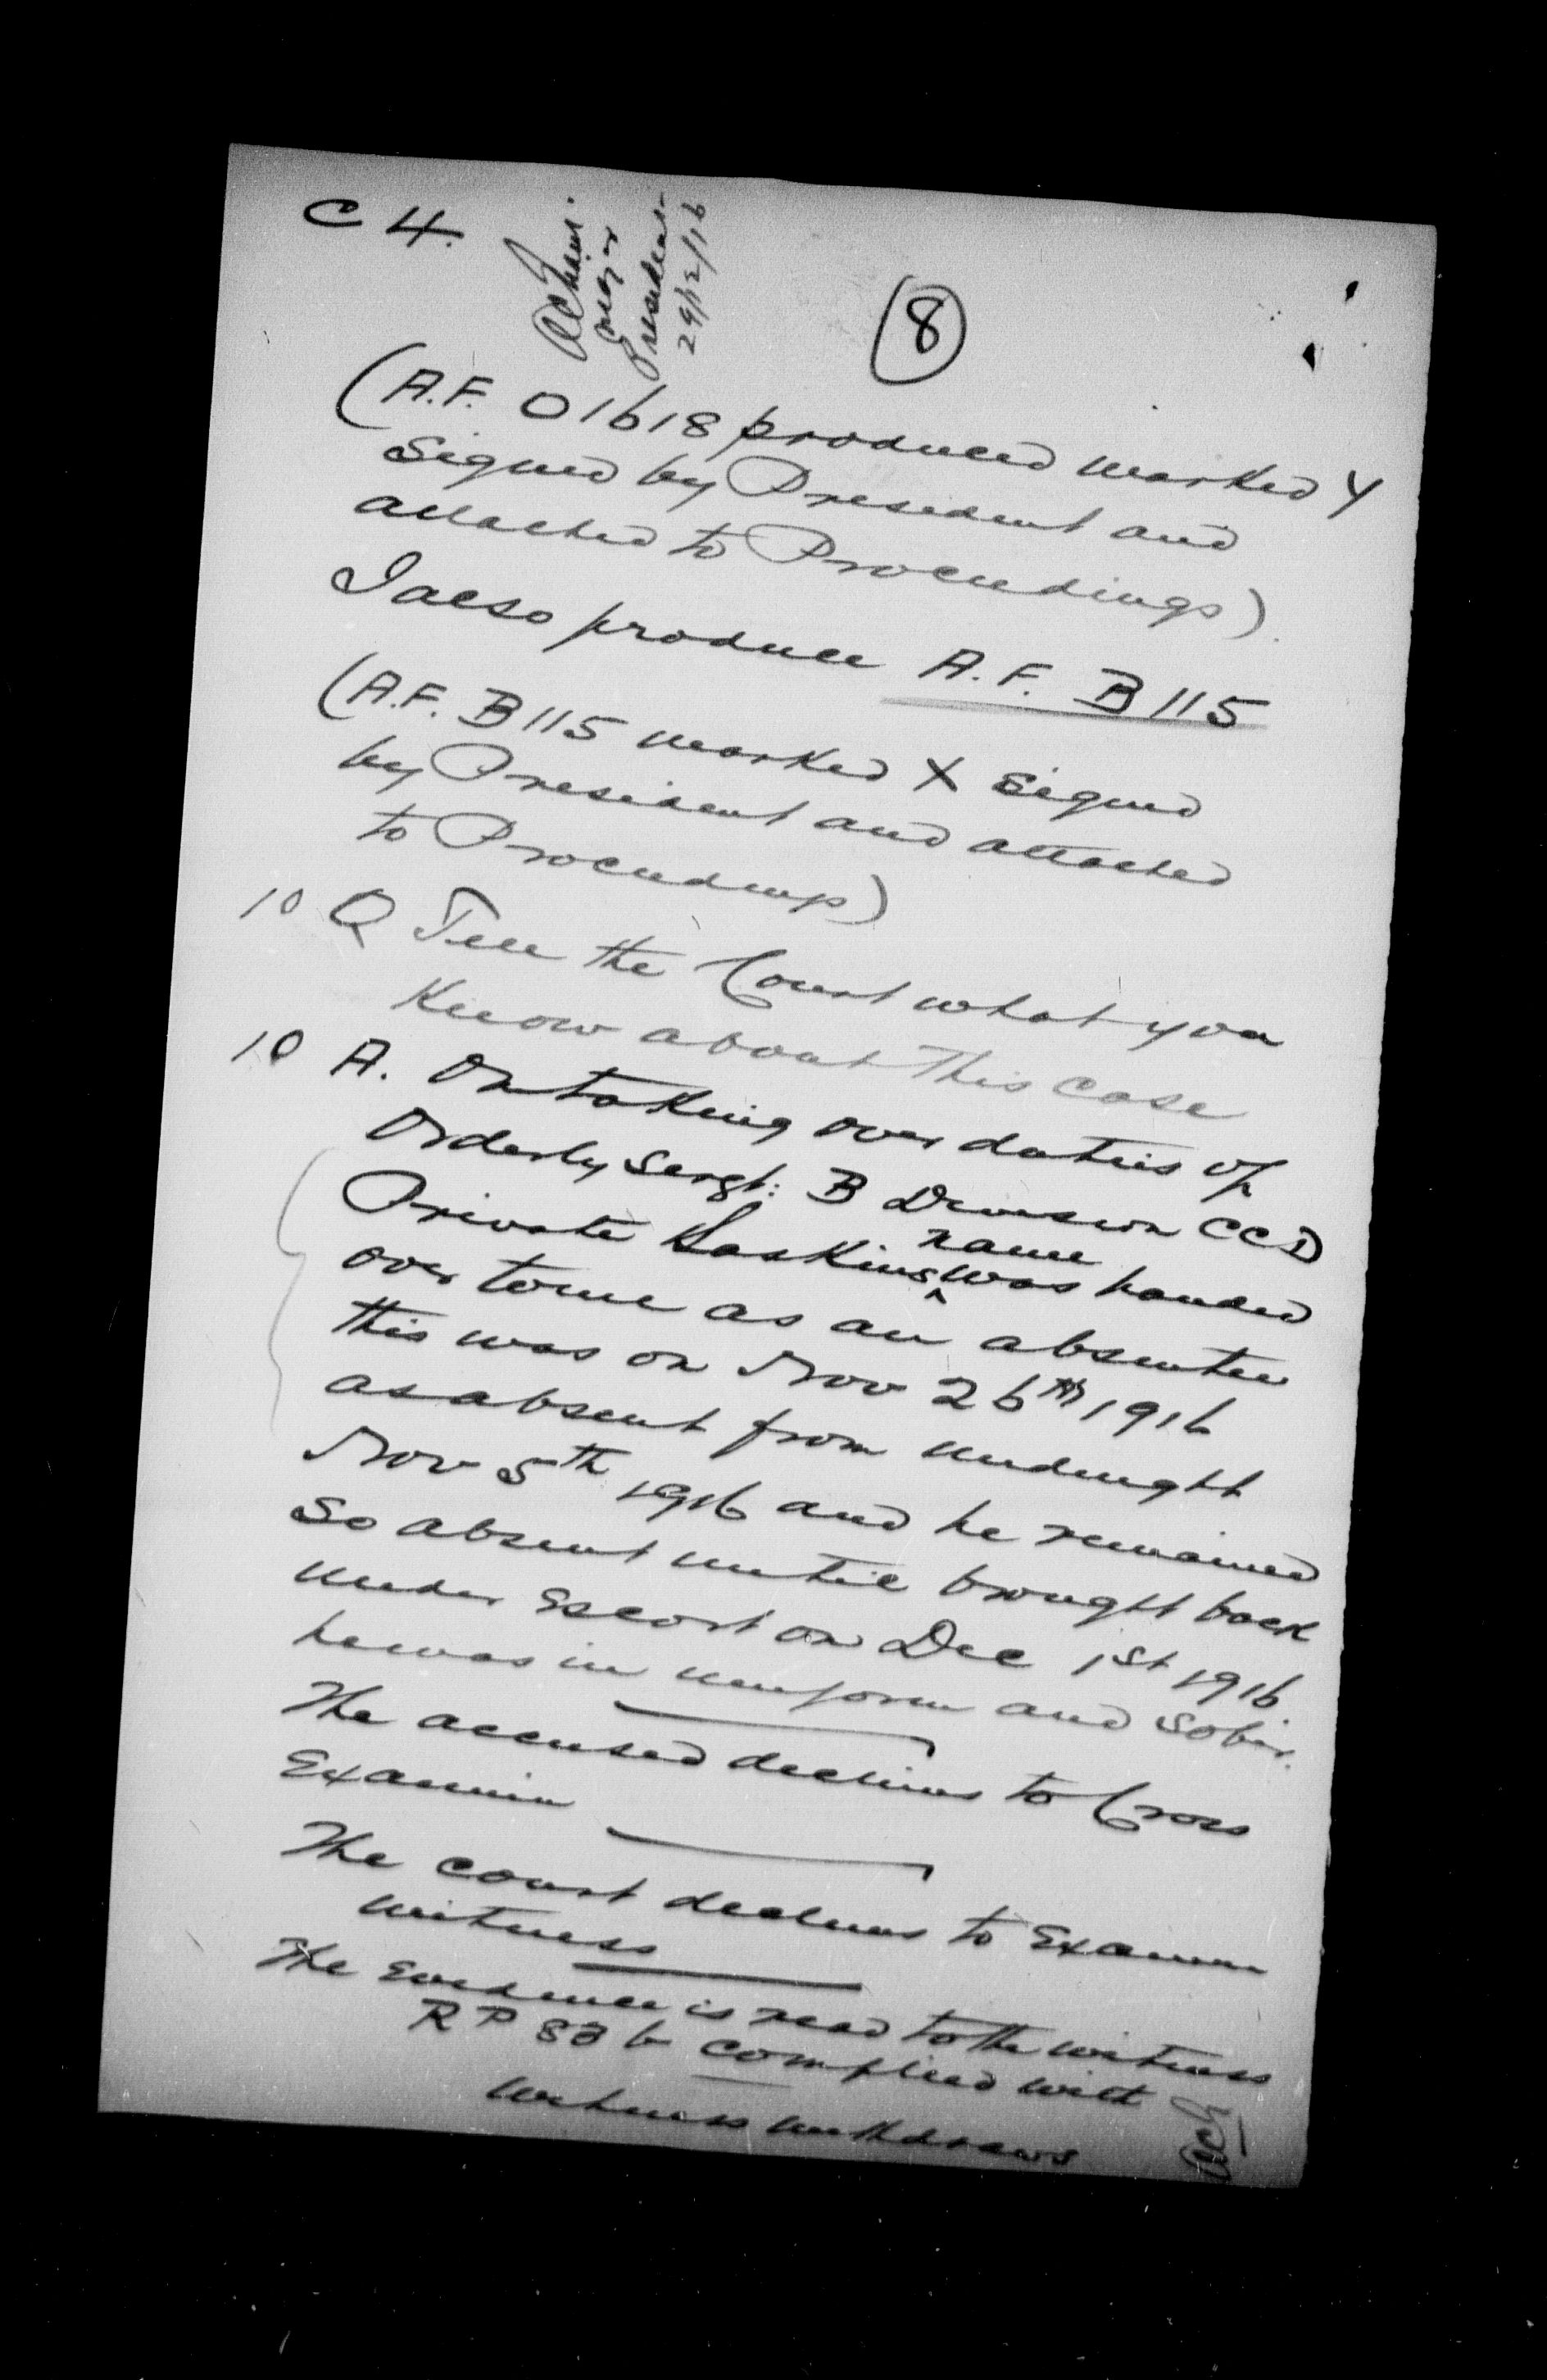 C 4.
Major
President
29/12/16
8
(A.F. O1618 produced marked Y
Signed by President and
attached to Proceedings).
I also produce A.F. B115
(A.F. B115 marked X signed
by President and attached
to Proceedings)
10 Q Tell the Court what you
Know about this case
10 A. On taking over duties of
Orderly Sergt: B Division CCD
name
Private was handed
over to me as an absentee
this was on Nov 26th 1916
as absent from midnight
Nov 5th 1916 and he remained
so absent until brought back
under Escort on Dec 1st 1916
he was in uniform and sober.
The accused declines to Cross
Examine
The court declines to Examine
witness
The Evidence is read to the witness
RP 83 b complied with
Witness withdraws